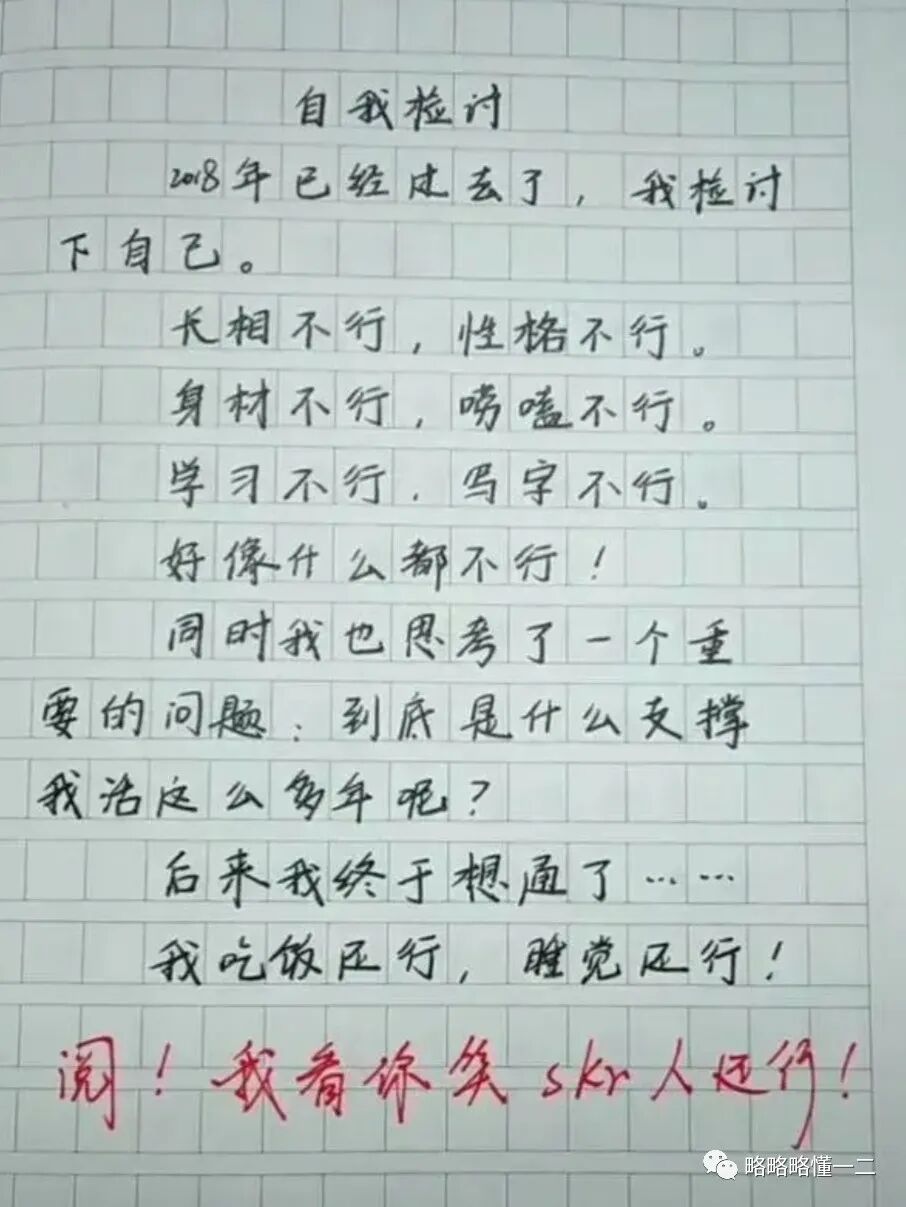 自我检讨
2018年已经过去了，我检讨
下自己。
长相不行，性格不行。
身材不行，唠嗑不行。
学习不行，写字不行。
好像什么都不行！
同时我也思考了一个重
要的问题：到底是什么支撑
我活这么多年呢？
后来我终于想通了……
我吃饭还行，睡觉还行！
阅！我看你笑skr人还行！
略略略懂一二